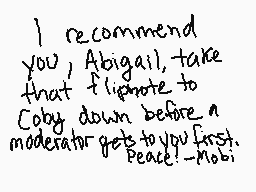 I recommend
you, Abigail, take
that flipnote to
Coby down before a
moderator gets to you first.
Peace! -Mobi